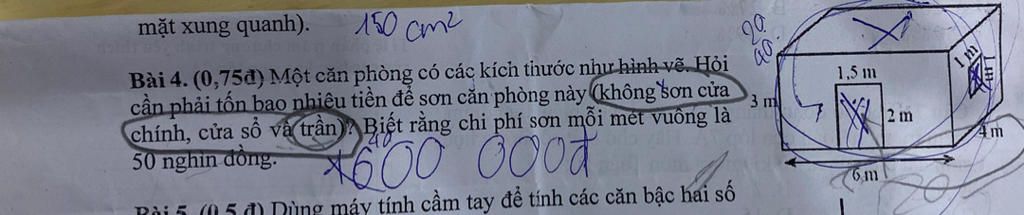 mặt xung quanh). 150 cm²
Bài 4. (0,75đ) Một căn phòng có các kích thước như hình vẽ. Hỏi
cần phải tốn bao nhiêu tiền để sơn căn phòng này (không sơn cửa
chính, cửa sổ và trần)? Biết rằng chi phí sơn mỗi mét vuông là
50 nghìn đồng.
600 000đ
Bài 5. (0,5đ) Dùng máy tính cầm tay để tính các căn bậc hai số
1 m
1 m
1,5 m
3 m
2 m
4 m
6 m